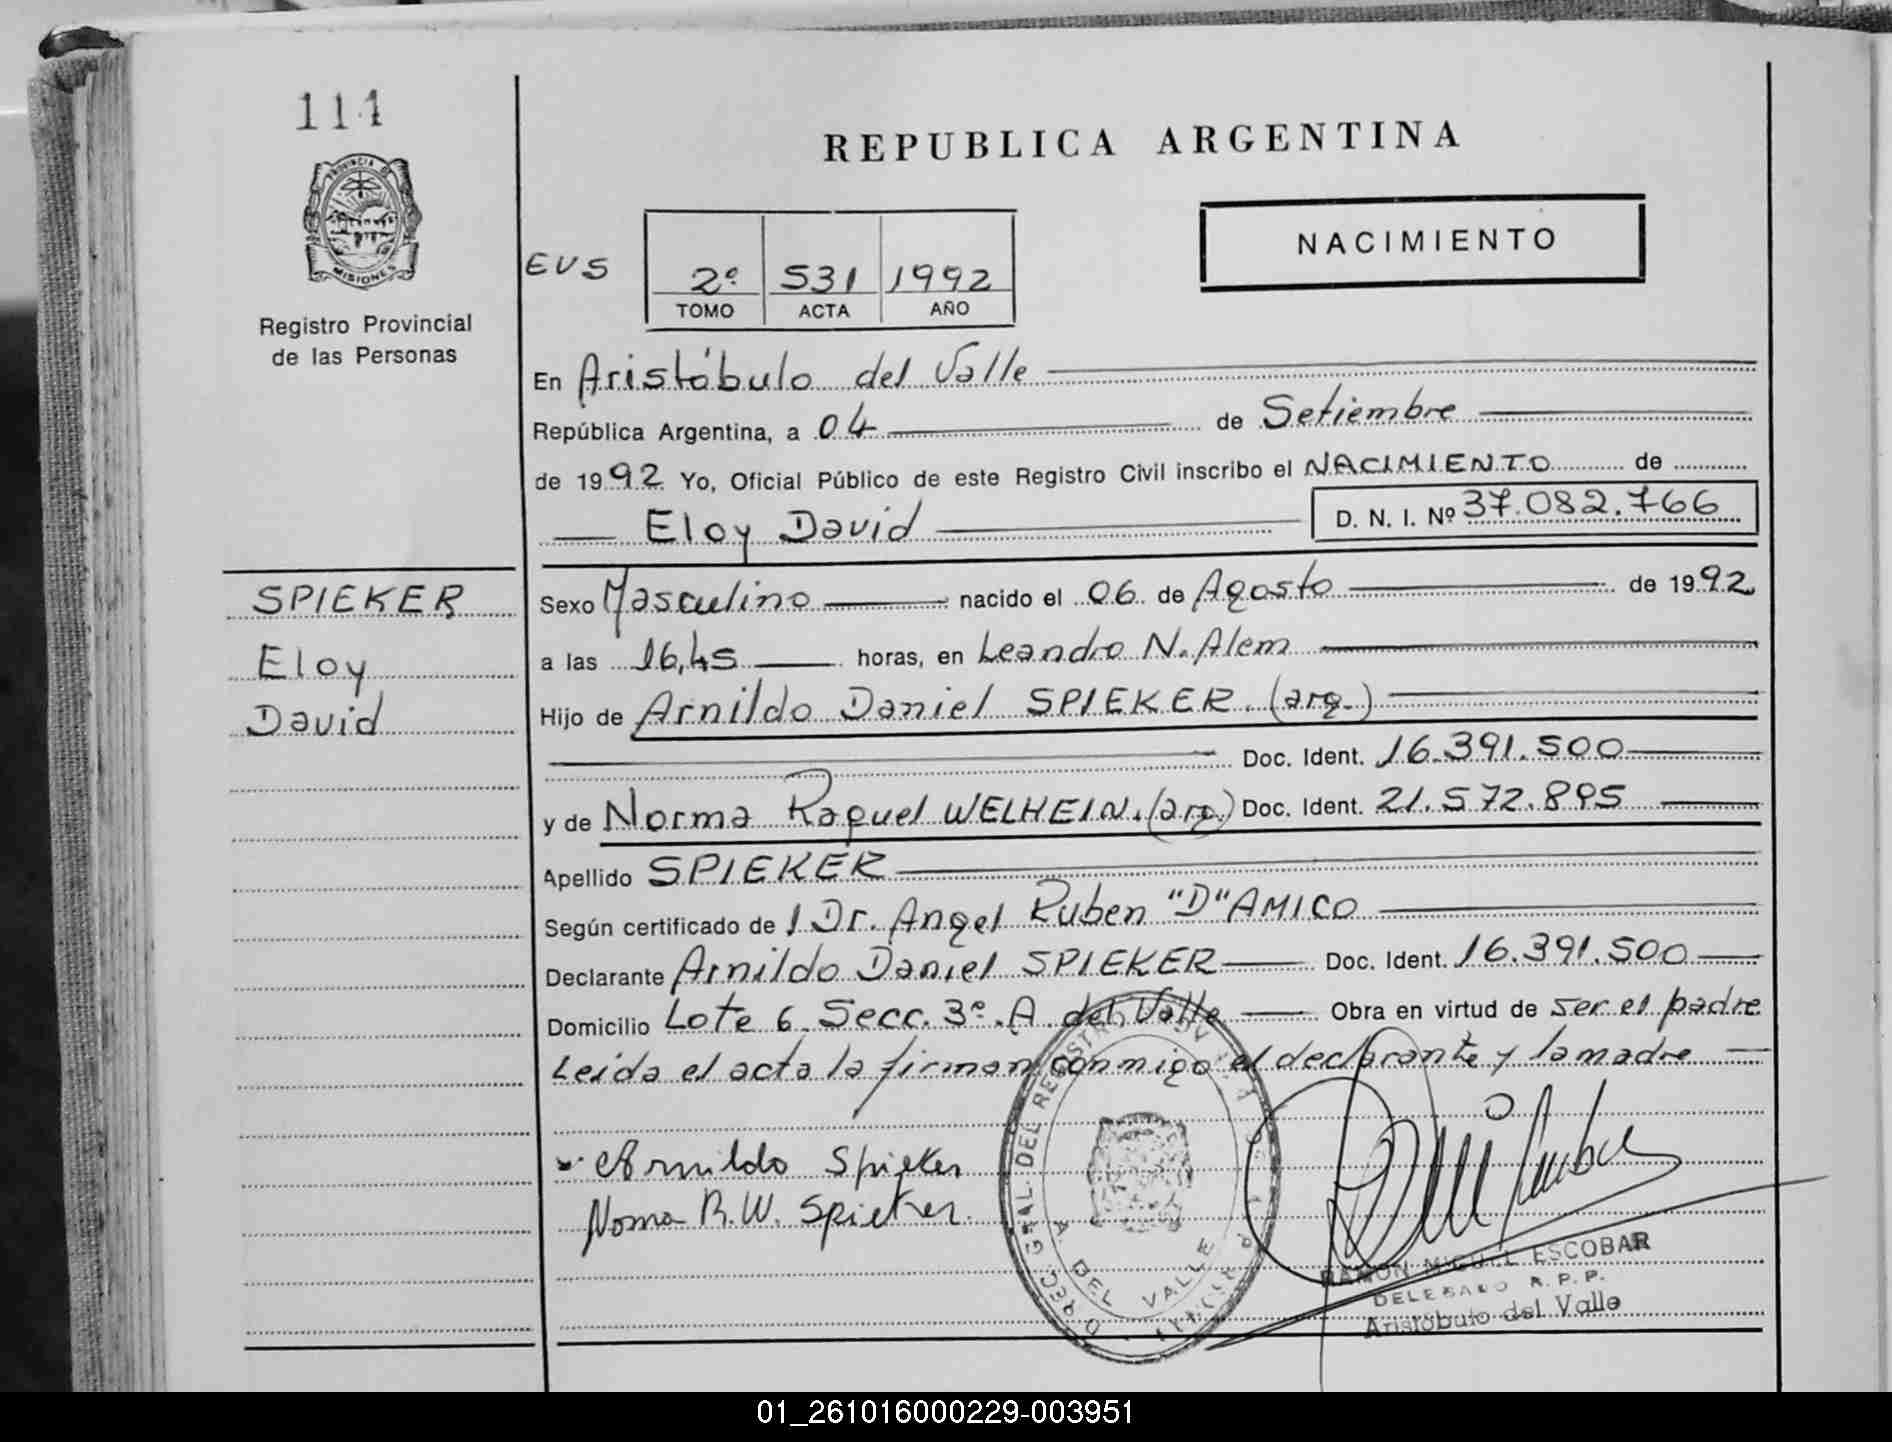 111
PROVINCIA DE
MISIONES
Registro Provincial
de las Personas
REPUBLICA ARGENTINA
NACIMIENTO
EVS
2º 531 1992
TOMO ACTA AÑO
En Aristóbulo del Valle
República Argentina, a 04 de Setiembre
de 1992 Yo, Oficial Público de este Registro Civil inscribo el NACIMIENTO de
Eloy David D. N. I. Nº 37.082.766
SPIEKER
Eloy
David
Sexo Masculino nacido el 06 de Agosto de 1992
a las 16,45 horas, en Leandro N. Alem
Hijo de Arnildo Daniel SPIEKER. (arg.)
Doc. Ident. 16.391.500
y de Norma Raquel WELHEIN. (arg.) Doc. Ident. 21.572.895
Apellido SPIEKER
Según certificado de l Dr. Angel Ruben "D" AMICO
Declarante Arnildo Daniel SPIEKER Doc. Ident. 16.391.500
Domicilio Lote 6. Secc. 3º. A. del Valle Obra en virtud de ser el padre
Leida el acta la firman conmigo el declarante y la madre
Arnildo Spieker
Norma R.W. Spieker.
GRAL. DEL REGISTRO
A. DEL VALLE
RAMON MIGUEL ESCOBAR
DELEGADO R.P.P.
Aristóbulo del Valle
01_261016000229-003951